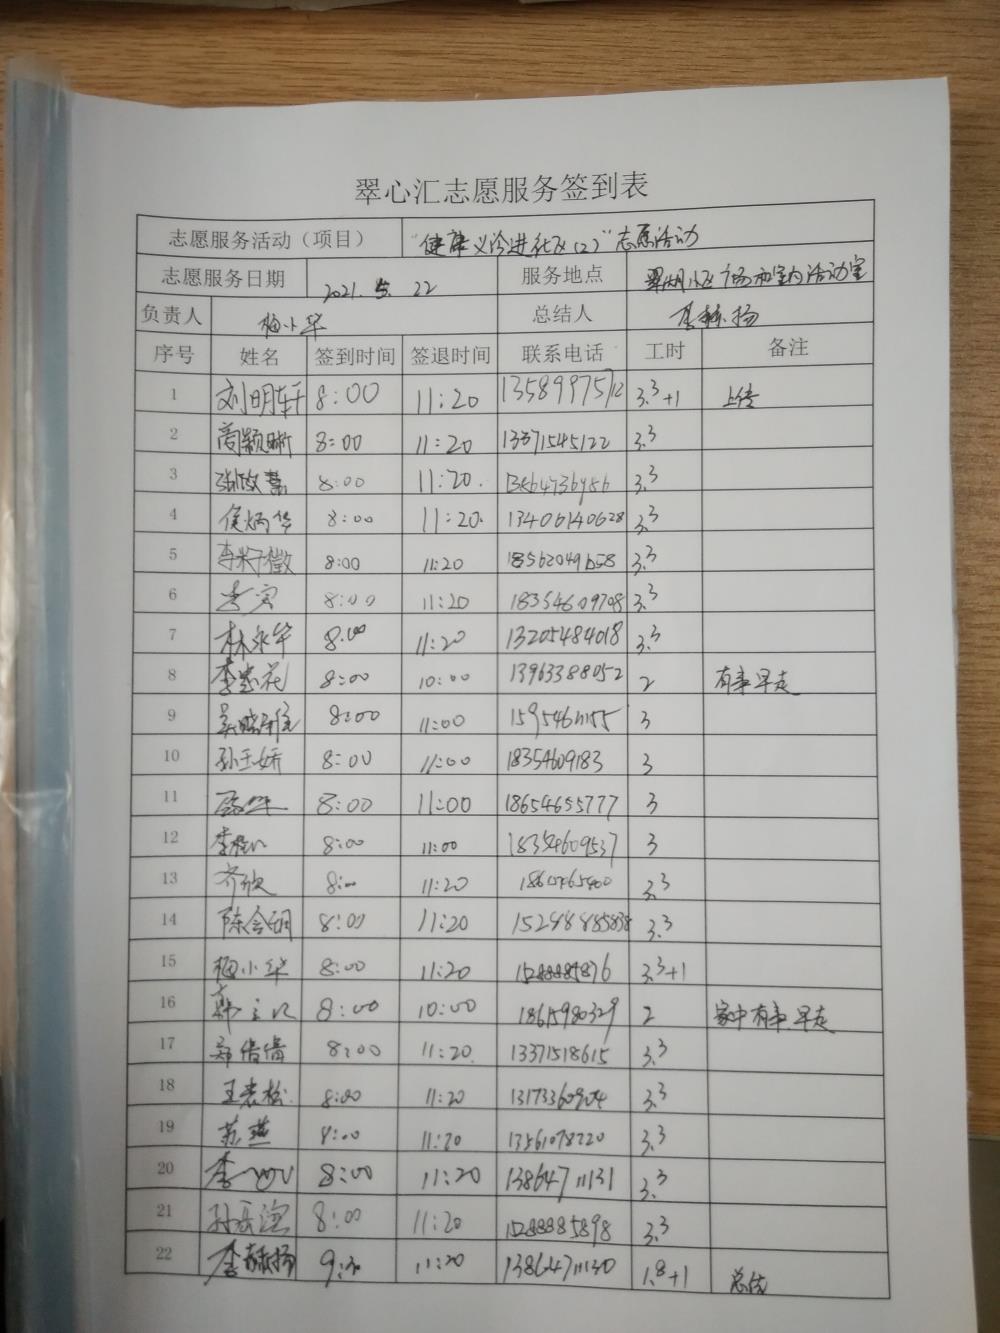 翠心汇志愿服务签到表
志愿服务活动（项目） “健康义诊进社区(2)”志愿活动
志愿服务日期 2021. 5. 22 服务地点 翠湖小区广场和室内活动室
负责人 梅小华 总结人 李赫扬
序号 姓名 签到时间 签退时间 联系电话 工时 备注
1 刘明轩 8:00 11:20 13589975712 3.3+1 上传
2 商颖晰 8:00 11:20 13371545122 3.3
3 8:00 11:20. 3.3
4 侯炳华 8:00 11:20. 13406140628 3.3
5 8:00 11:20 18562049658 3.3
6 李寅 8:00 11:20 18354609708 3.3
7 林永华 8:00 11:20 13205484018 3.3
8 8:00 10:00 13963388052 2 有事早走
9 8:00 11:00 3
10 孙玉娇 8:00 11:00 18354609183 3
11 8:00 11:00 18654655777 3
12 8:00 11:00 18354609537 3
13 齐欣 8:00 11:20 3.3
14 陈会娟 8:00 11:20 15288885838 3.3
15 梅小华 8:00 11:20 15288885876 3.3+1
16 8:00 10:00 18615980329 2 家中有事.早走
17 郑倩倩 8:00 11:20. 13371518615 3.3
18 8:00 11:20 13173360904 3.3
19 苏燕 8:00 11:20 3.3
20 8:00 11:20 13864711131 3.3
21 8:00 11:20 15288885898 3.3
22 李赫扬 9:30 11:20 13864711130 1.8+1 总结